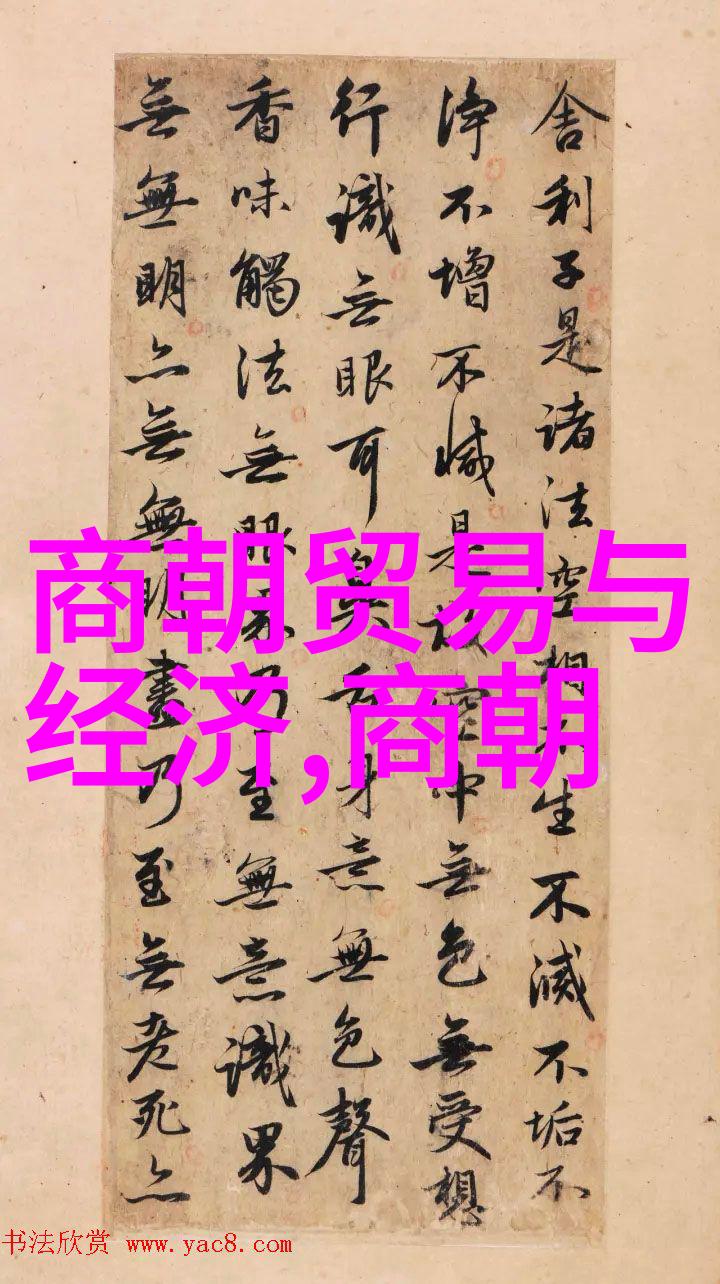 舍利子是诸法空相不生不滅不垢不
净不增不减是故空中無色無受想
行識無眼耳鼻舌身意無色聲
香味觸法無眼界乃至無意識界
無無明亦無無明盡乃至無老死亦
商朝贸易与
经济,商朝
书法欣赏 www.yac8.com